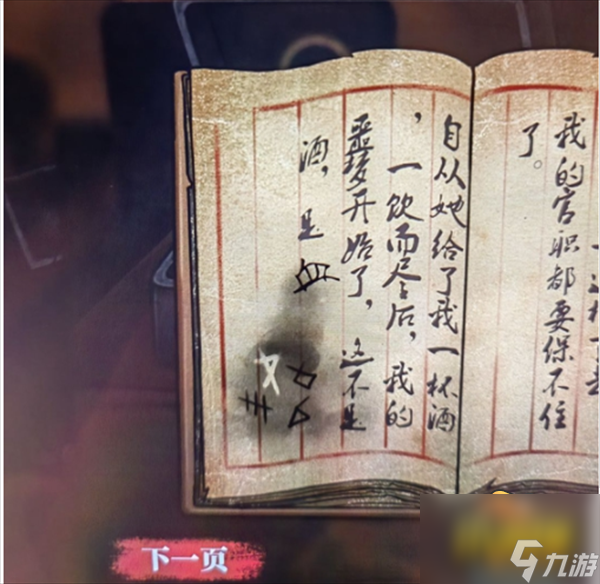 我的官职都要保不住
了。
自从她给了我一杯酒
，一饮而尽后，我的
噩梦开始了，这不是
酒，是血
下一页
九游